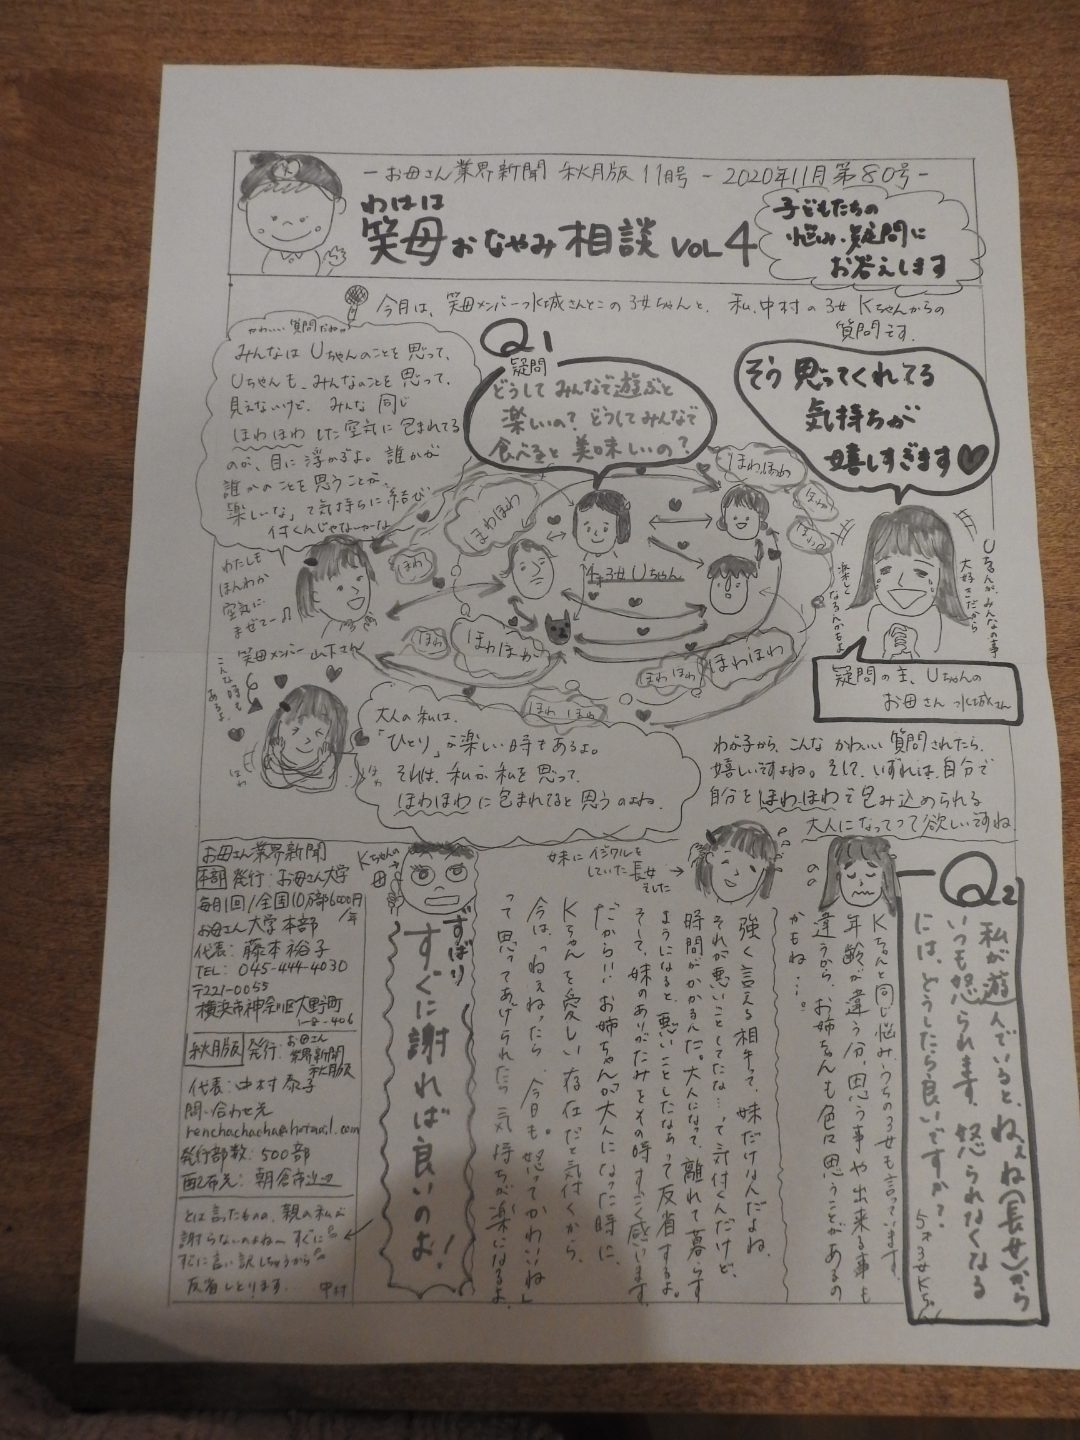 －お母さん業界新聞 秋月版 11月号－2020年11月第80号－
わはは
笑母おなやみ相談 VOL4
子どもたちの
悩み・疑問に
お答えします
今月は、笑母メンバー水城さんとこの3女ちゃんと、私、中村の3女Kちゃんからの
質問です。
かわいい質問だねぇ
みんなはUちゃんのことを思って、
Uちゃんも、みんなのことを思って、
見えないけど、みんな同じ
ほわほわした空気に包まれてる
のが、目に浮かぶよ。誰かが
誰かのことを思うことが、
楽しいな」て気持ちに結び
付くんじゃないかな
Q1
疑問
どうしてみんなで遊ぶと
楽しいの？どうしてみんなで
食べると美味しいの？
そう思ってくれてる
気持ちが
嬉しすぎます♥
ほわほわ
ほわほわ
ほわ
ほわ
ほわ
4才3女Uちゃん
ほわ
ほわほわ
ほわほわ
ほわほわ
ほわほわ
わたしも
ほんわか
空気に
まぜてー♫
笑母メンバー山下さん
Uちゃんが、みんなの事
大好きだから
楽しく
なるんかもよ
疑問の主、Uちゃんの
お母さん 水城さん
こんな時も
あるよ。
ほわ
ほわ
大人の私は、
「ひとり」が楽しい時もあるよ。
それは、私が私を思って、
ほわほわに包まれてると思うのよね。
わが子から、こんなかわいい質問されたら、
嬉しいですよね。そして、いずれは、自分で
自分をほわほわで包み込められる
大人になってって欲しいですね
Q2
私が遊んでいると、ねぇね(長女)から
いつも怒られます。怒られなくなる
には、どうしたら良いですか？
5才3女Kちゃん
Kちゃんと同じ悩み、うちの3女も言っています。
年齢が違う分、思う事や出来る事も
違うから、お姉ちゃんも色々思うことがあるの
かもね…。
妹にイジワルを
していた長女
でした
強く言える相手って、妹だけなんだよね。
それが悪いことしてたな…って気付くんだけど、
時間がかかるんだ。大人になって、離れて暮らす
ようになると、悪いことしたなぁって反省するよ。
そして、妹のありがたみをその時すごく感じます。
だから!!お姉ちゃんが大人になった時に、
Kちゃんを愛しい存在だと気付くから、
今は、「ねぇねったら、今日も怒ってかわいいね」
って思ってあげられたら気持ちが楽になるよ。
Kちゃんの
母
ずばり
すぐに謝れば良いのよ！
お母さん業界新聞
本部 発行：お母さん大学
毎月1回/全国10万部 6000円/年
お母さん大学本部
代表：藤本裕子
TEL：045-444-4030
〒221-0055
横浜市神奈川区大野町
1-8-406
秋月版 発行：お母さん
業界新聞
秋月版
代表：中村泰子
問い合わせ先
renchachacha@hotmail.com
発行部数：500部
配布先：朝倉市近辺
とは言ったものの、親の私が
謝らないのよねぇ。すぐに
すぐに言い訳しちゃうから
反省しとります… 中村